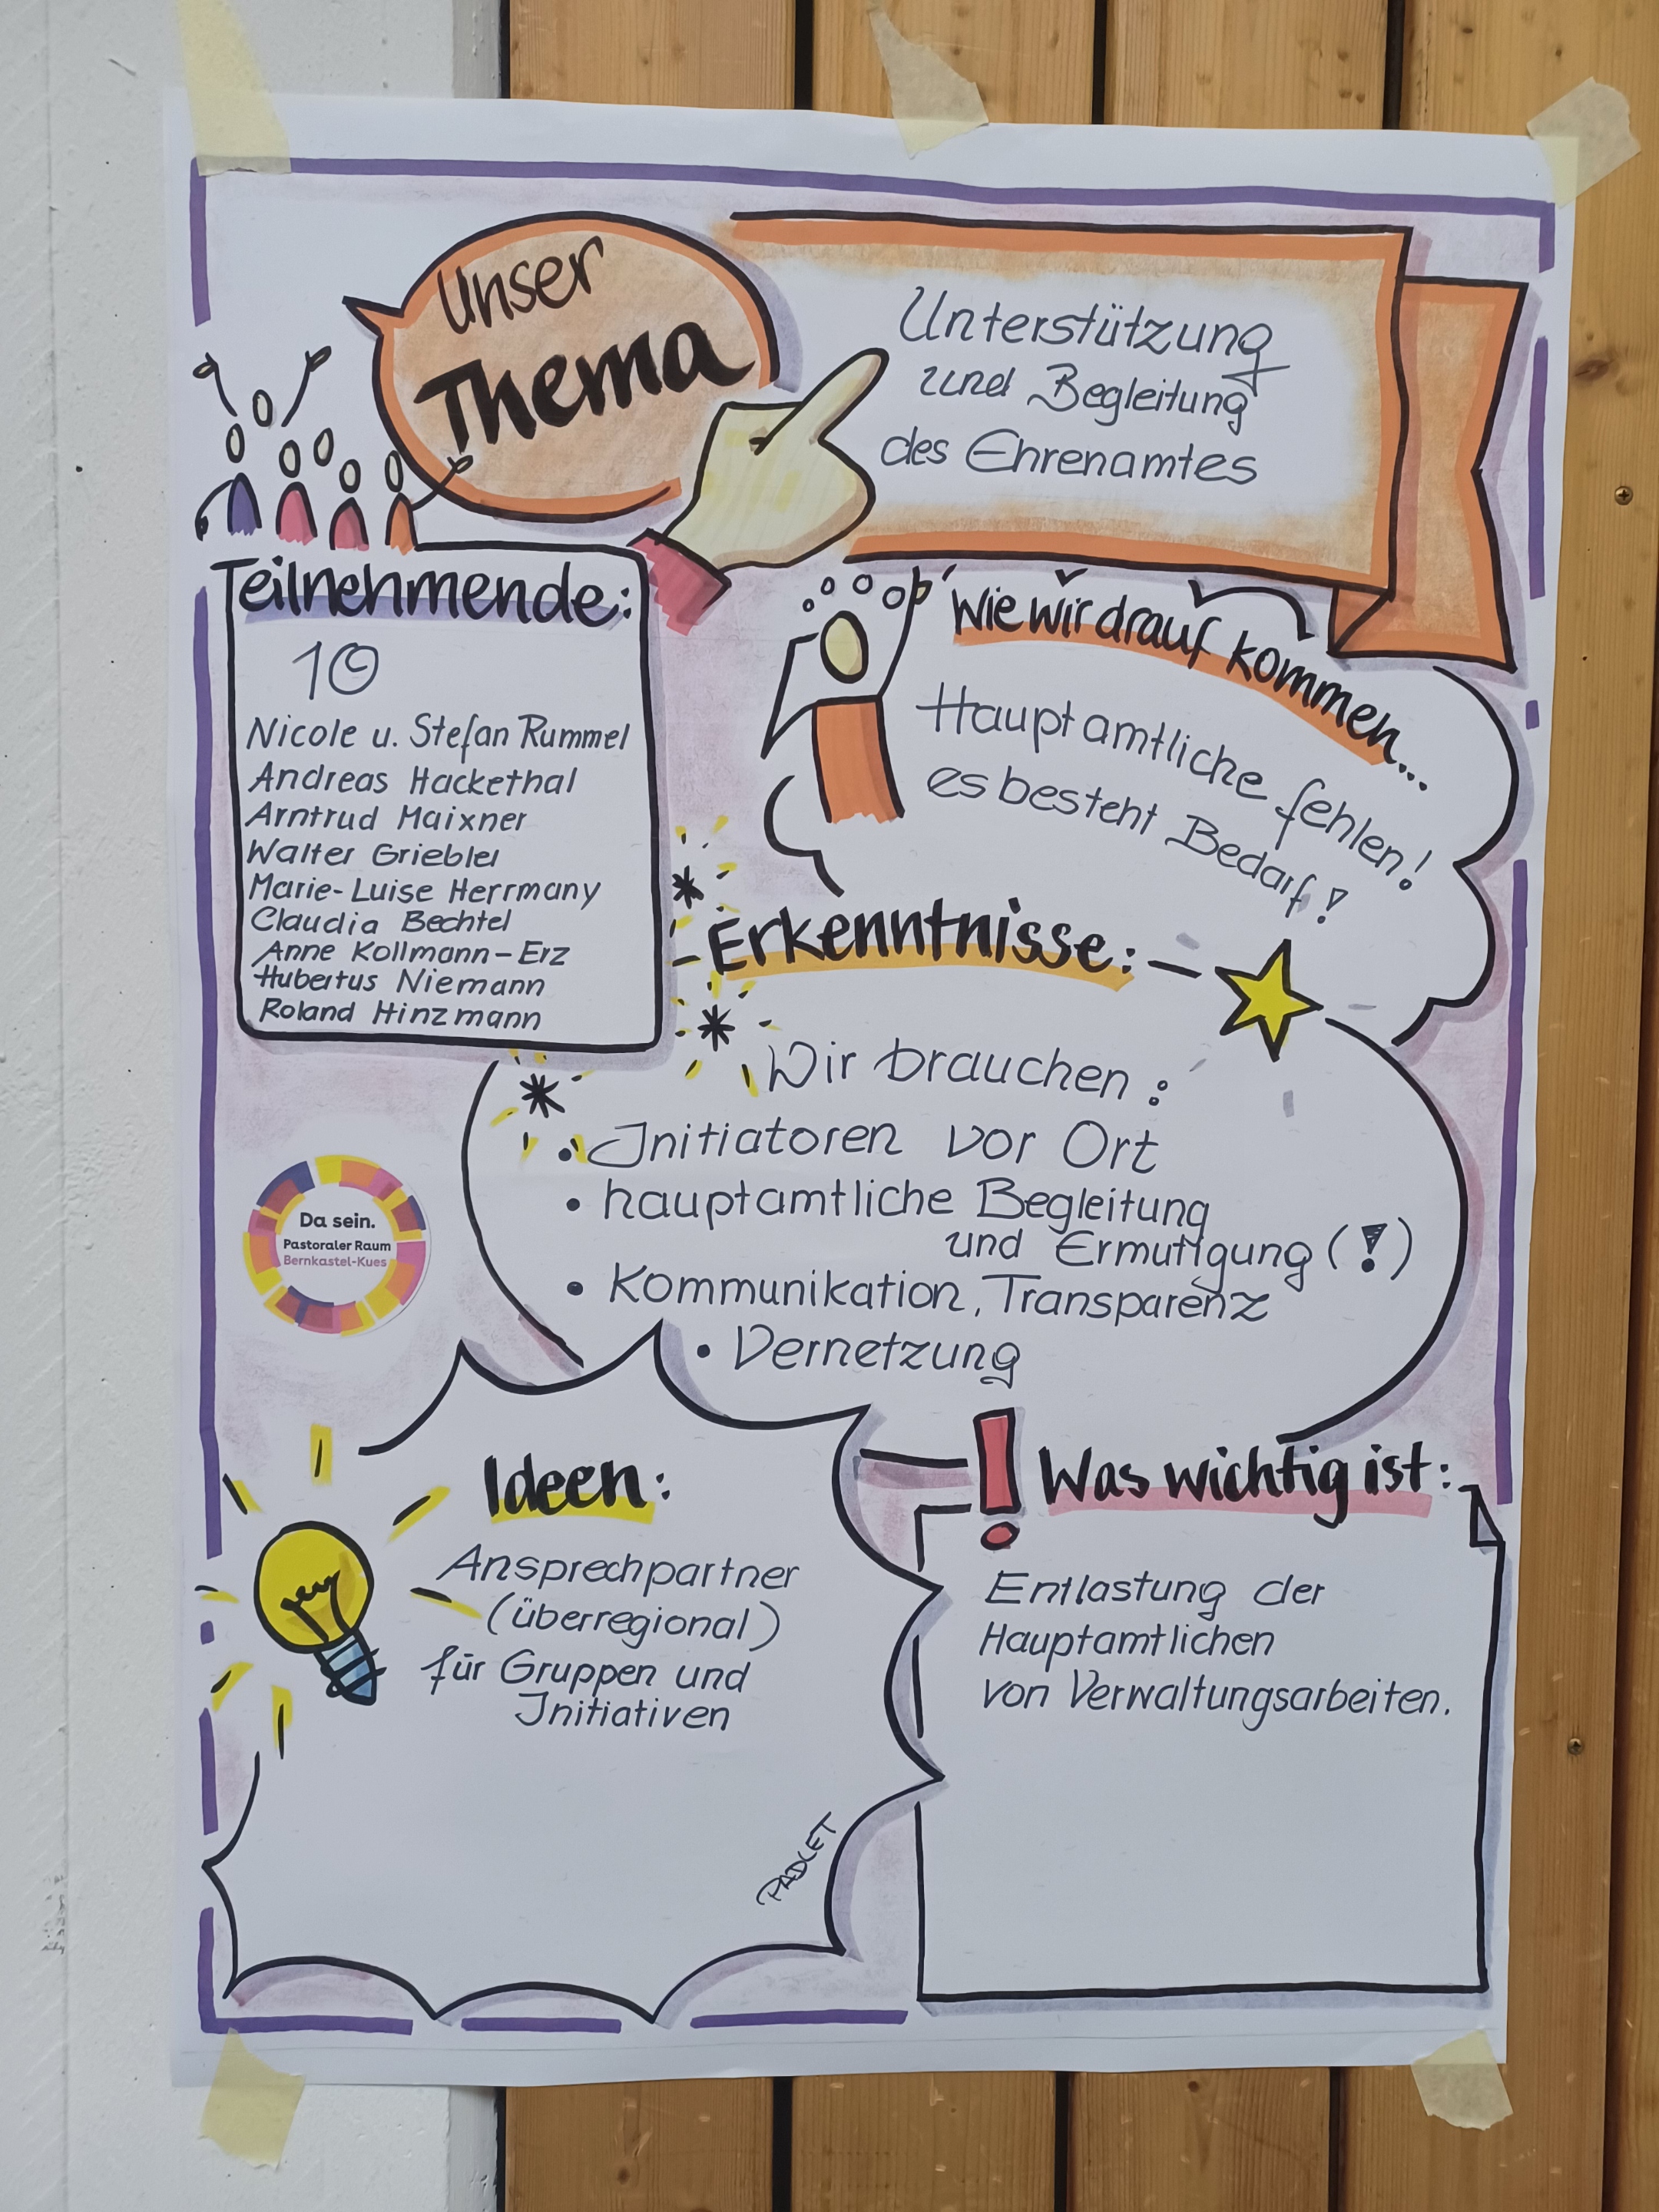 Unser
Thema
Unterstützung
und Begleitung
des Ehrenamtes
Teilnehmende:
10
Nicole u. Stefan Rummel
Andreas Hackethal
Arntrud Maixner
Walter Griebler
Marie-Luise Herrmany
Claudia Bechtel
Anne Kollmann-Erz
Hubertus Niemann
Roland Hinzmann
Wie wir drauf kommen...
Hauptamtliche fehlen!
es besteht Bedarf!
Erkenntnisse:
Wir brauchen:
• Initiatoren vor Ort
• hauptamtliche Begleitung
und Ermutigung (!)
• Kommunikation, Transparenz
• Vernetzung
Da sein.
Pastoraler Raum
Bernkastel-Kues
Ideen:
Ansprechpartner
(überregional)
für Gruppen und
Initiativen
PADLET
! Was wichtig ist:
Entlastung der
Hauptamtlichen
von Verwaltungsarbeiten.